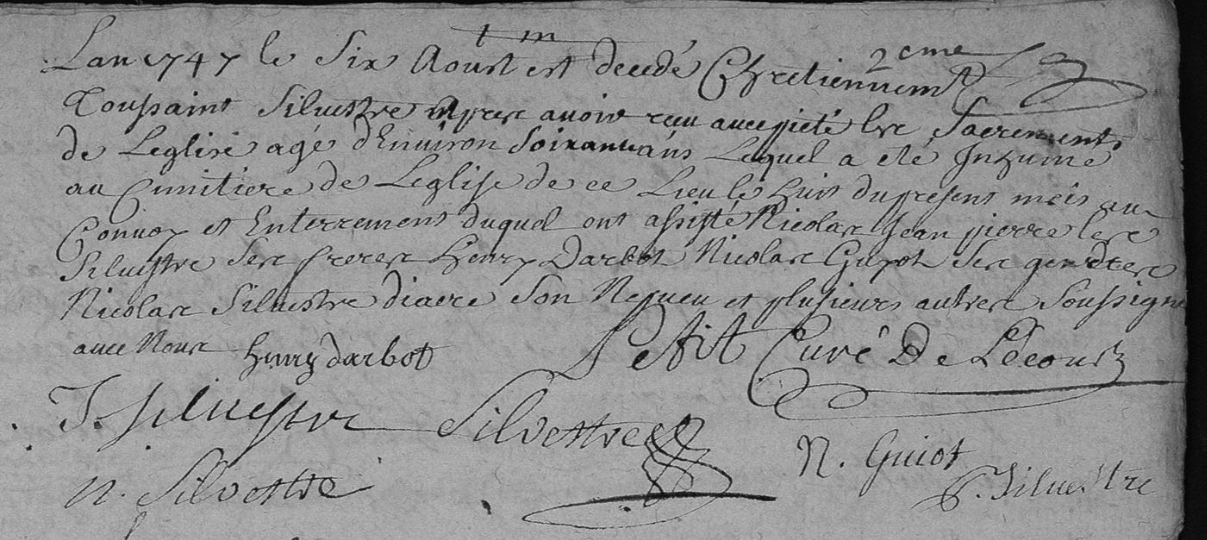 t m
2eme
Lan 1747 le Six Aoust est decedé Chretiennemt
Toussaint Silvestre apres avoir receu avec pieté les Sacrements
de Leglise agé d'Environ Soixante ans Lequel a eté Inhumé
au Cimitiere de Leglise de ce Lieu le huit du present mois au
Convoy et Enterrement duquel ont assisté Nicolas Jean pierre les
Silvestre Ses freres Henry Darbot Nicolas Guyot Ses gendres
Nicolas Silvestre diacre Son Nepveu et plusieurs autres Soussignes
avec Nous henry darbot Petit Curé De Lécourt
J. silvestre Silvestre
N. Guiot
n. Silvestre
p. Silvestre